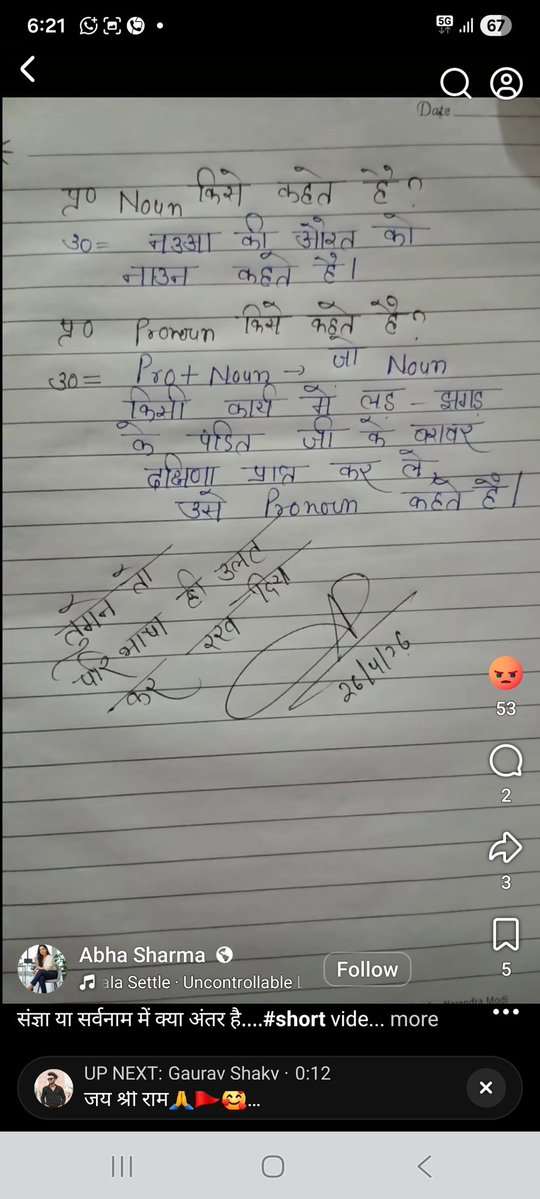 6:21
5G
67
Date
प्र० Noun किसे कहते है?
उ०= नउआ की औरत को
नाउन कहते है।
प्र० Pronoun किसे कहते है?
उ०= Pro + Noun → जो Noun
किसी कार्य में लड़ - झगड़
के पंडित जी के बराबर
दक्षिणा प्राप्त कर ले,
उसे Pronoun कहते है।
तुमने तो
परिभाषा ही उलट
कर रख दिया
26/4/26
53
2
3
5
Abha Sharma
Follow
ala Settle · Uncontrollable L
Narendra Modi
संज्ञा या सर्वनाम में क्या अंतर है....#short vide... more
UP NEXT: Gaurav Shakv · 0:12
जय श्री राम🙏🚩🥰...